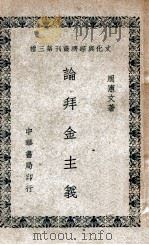 種三第刊叢濟經與化文
周憲文著
論拜金主義
中華書局印行